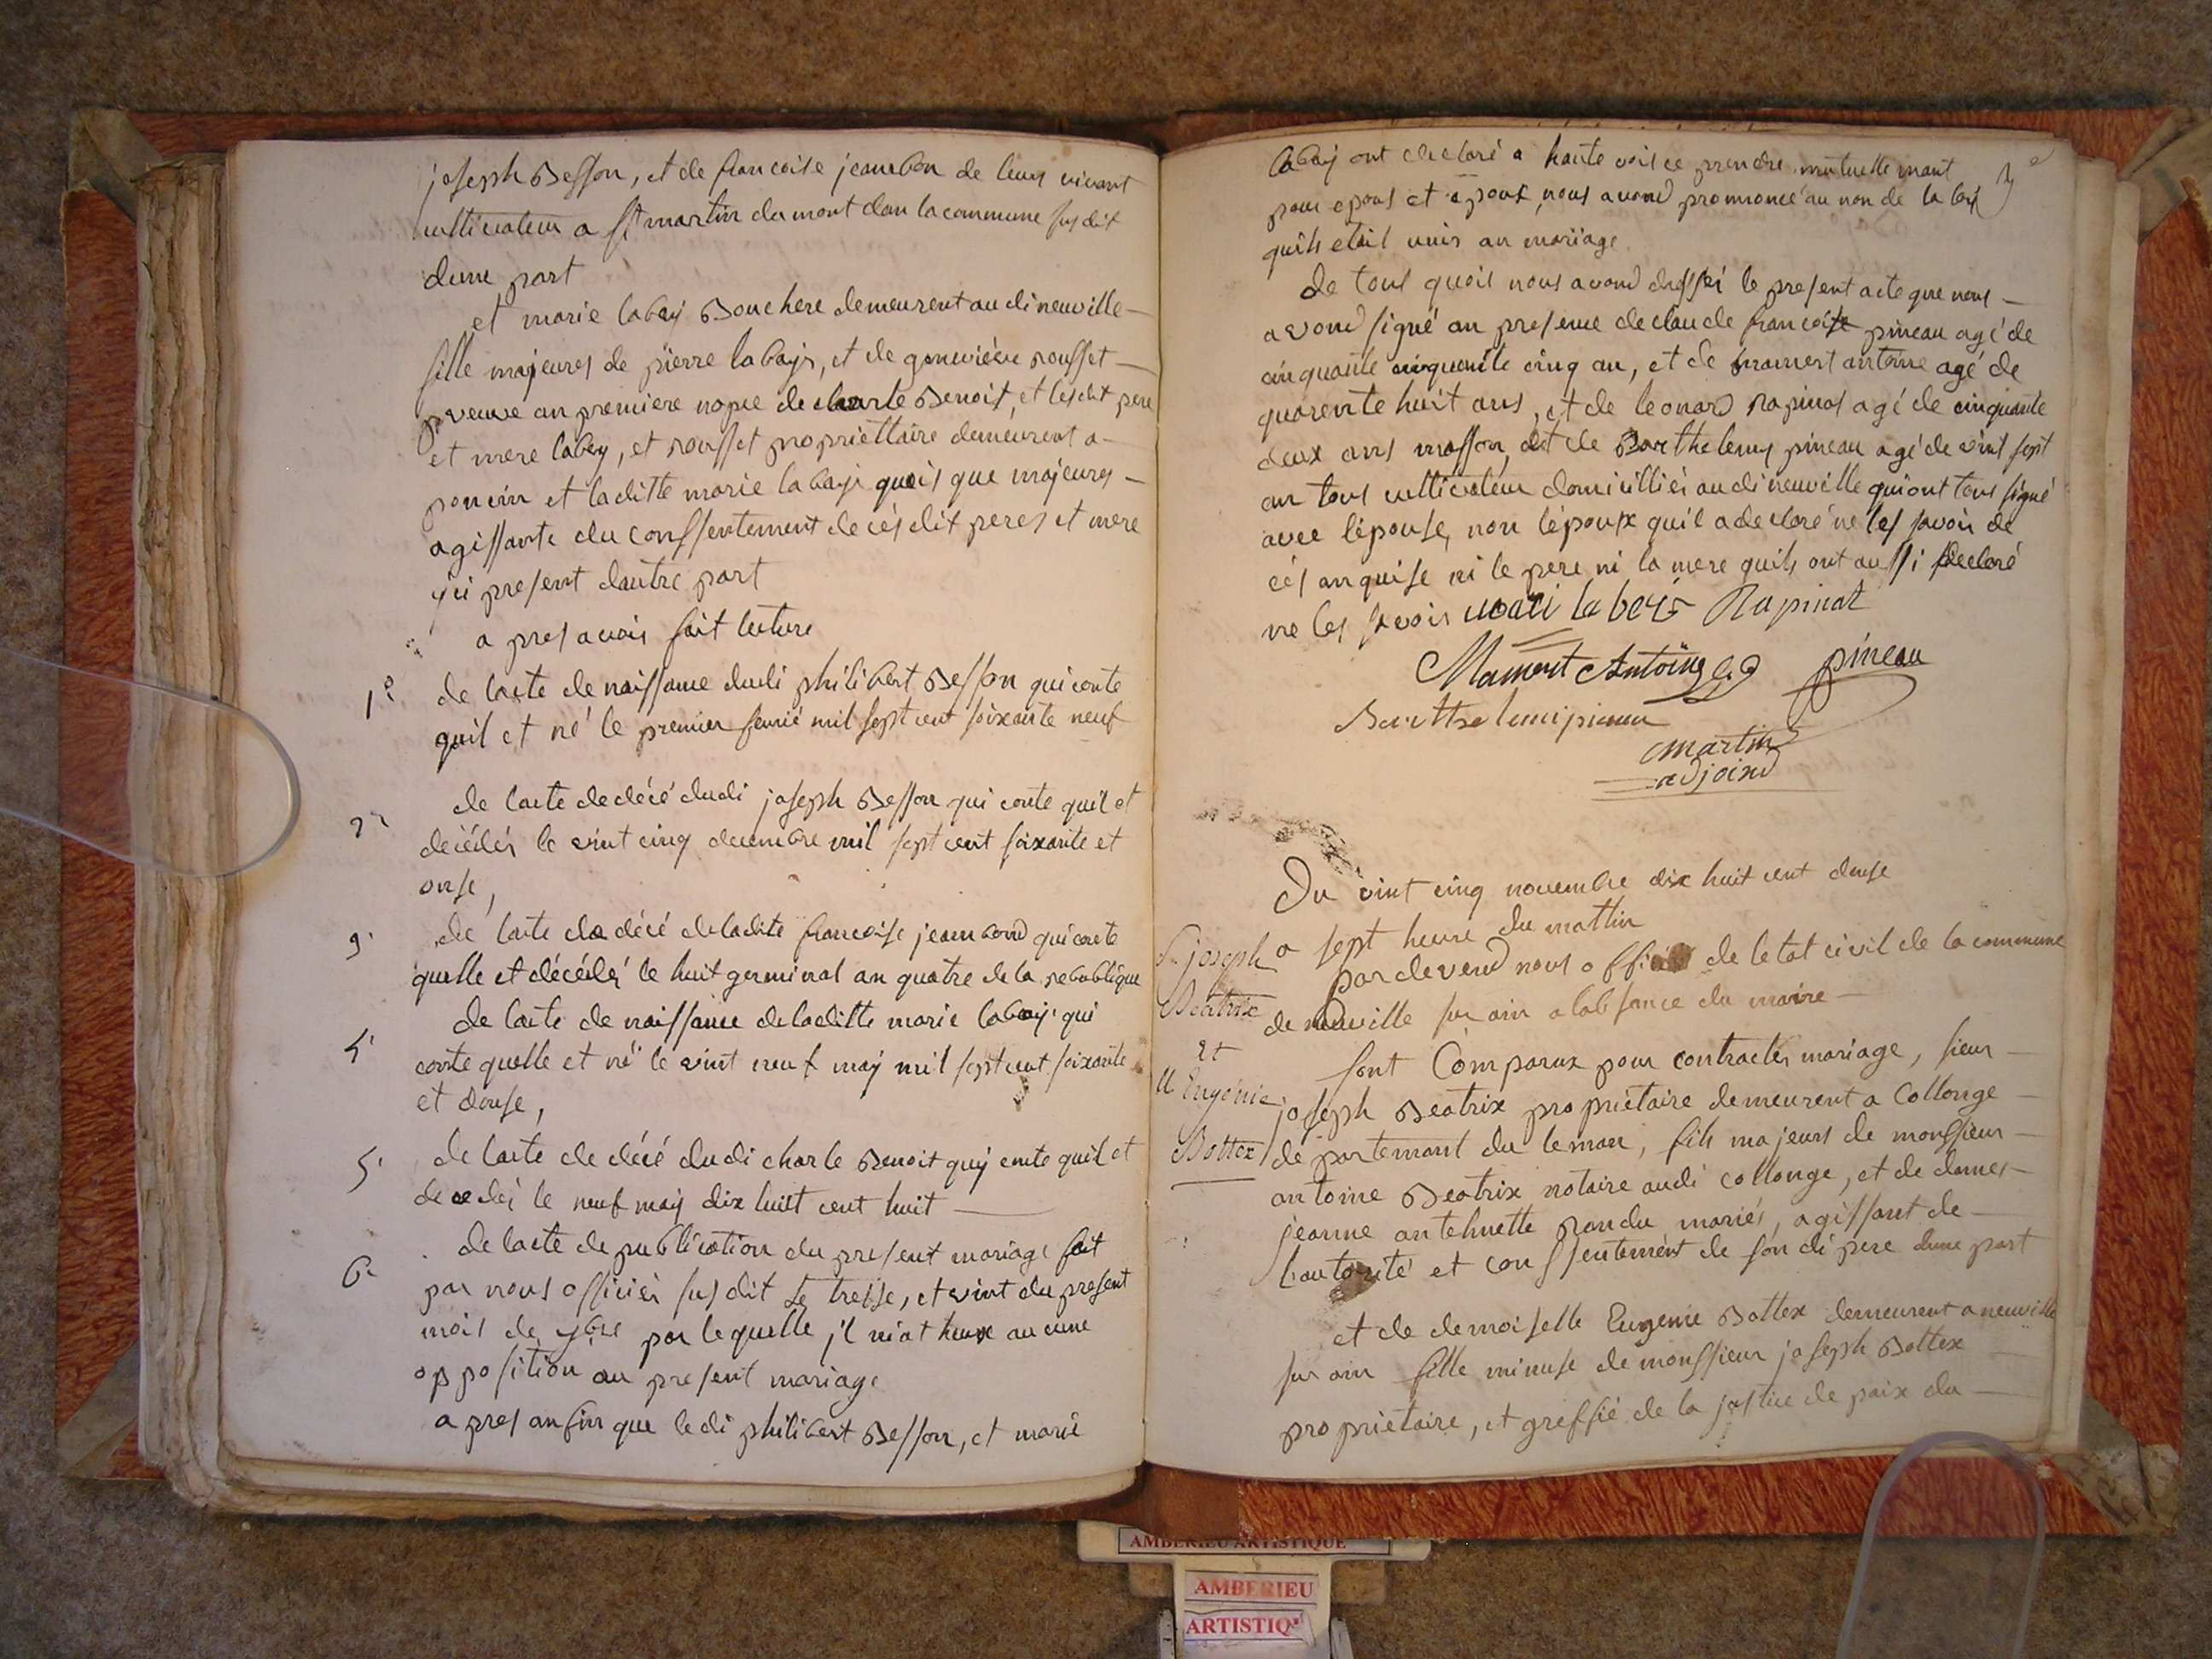 joseph Besson, et de francoise jeanbon de leurs vivant
cultivateur a St martin du mont dan la commune susdit
dune part
et marie labay Bouchere demeurent audi neuville
fille majeures de pierre labays, et de genevieve rousset
veuve an premiere nopce de charle Benoit, et lesdit pere
et mere labey, et rousset propriettaire demeurent a
poncin et laditte marie labaye quois que majeures
agissante du conssentement de cés dit peres et mere
yci present dautre part
a pres avois fait lecture
1° de lacte de naissance dudi philibert Besson qui conte
quil et né le premier fevrié mil sept cent soixante neuf
2° de lacte de décé dudi joseph Besson qui conte quil et
décédés le vint cinq decembre mil sept cent soixante et
onse,
3° de lacte de décé de ladite francoise jeanbond qui conte
quelle et décédés le huit germinal an quatre de la republique
4° de lacte de naissance de laditte marie labaye qui
conte quelle et né le vint neuf may mil sept cent soixante
et douse,
5° de lacte de décé dudi charle Benoit quy conte quil et
decedés le neuf may dix huit cent huit
6° de lacte de publication du present mariage fait
par nous officier susdit le treise, et vint du present
mois de 9bre par lequelle j'l niat heuse aucune
opposition au present mariage
a pres anfin que le di philibert Besson, et marie
labay ont declaré a haute vois ce prendre mutuelle mant
pour epous et époux, nous avond prononcé au non de la loy
quils etoil unis an mariage
de tous quois nous avond dressei le present acte que nous
avond signé an presence de claude francoise pineau agé de
cinquante cinquante cinq an, et de mamert antoine agé de
quarente huit ans, et de leonard rapinat agé de cinquante
deux ans masson, et de Barthelemy pineau agé de vint sept
an tous cultivateur domicilliés audi neuville qui ont tous signé
avec lépouse, non lépoux quil a declaré ne les savoir de
cés anquise ni le pere ni la mere quils ont aussi declaré
ne les savoir mari labeis Rapinat
Mamert Antoine pineau
Barttelemi pineau
martin
adjoind
Du vint cinq novembre dix huit cent douse
a sept heure du mattin
Sr joseph
Beatrix
et
dlle Eugénie
Bottex
par devend nous officier de letat civil de la commune
de neuville sur ain a labsance du maire
sont Comparux pour contractés mariage, sieur
joseph Beatrix propriétaire demeurent a Collonge
département du leman, fils majeurs de monssieur
antoine Beatrix notaire audi collonge, et de dames
jeanne antehnette pandu mariés, agissant de
lautorité et conssentement de son di pere dune part
et de demoiselle Eugenie Bottex demeurent a neuville
sur ain fille mineuse de monssieur joseph Bottex
propriétaire, et greffié de la justice de paix du
AMBERIEU ARTISTIQUE
AMBERIEU
ARTISTIQ